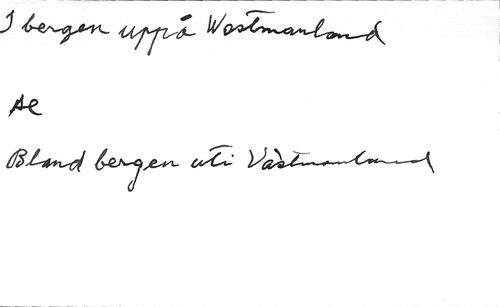 I bergen uppå Westmanland
se
Bland bergen uti Västmanland